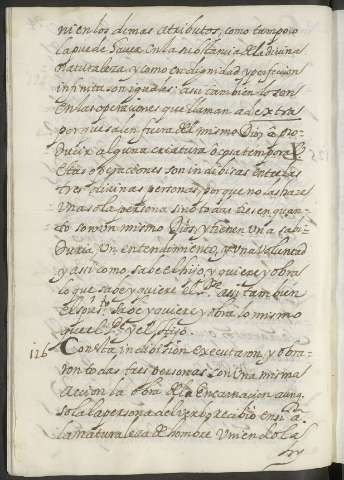 ni en los demas atributos, como tampoco
la puede hauer en la substancia de la divina
naturaleza y como en dignidad y perfeccion
infinita son iguales: asi tambien lo son
en las operaciones que llaman ad extra
porque salen fuera del mismo Dios â pro-
ducir alguna criatura o cosa temporal
Estas operaciones son indibisas entre las
tres divinas personas, porque no las haze
una sola persona sino todas tres en quan-
to son un mismo Dios, y tienen una sab-
duria un entendimiento, y una voluntad
y asi como sabe el hijo, y quiere y obra
lo que sabe y quiere el Pe. asi tambien
el spiritu sto. sabe y quiere y obra lo mismo
que el Pe. y el hijo.
126 Con esta indibision executaron y obra-
ron todas tres personas con una misma
accion la obra de la Encarnacion aunq.
sola la persona del verbo recibio en si â
la naturaleza de hombre uniendola
hy